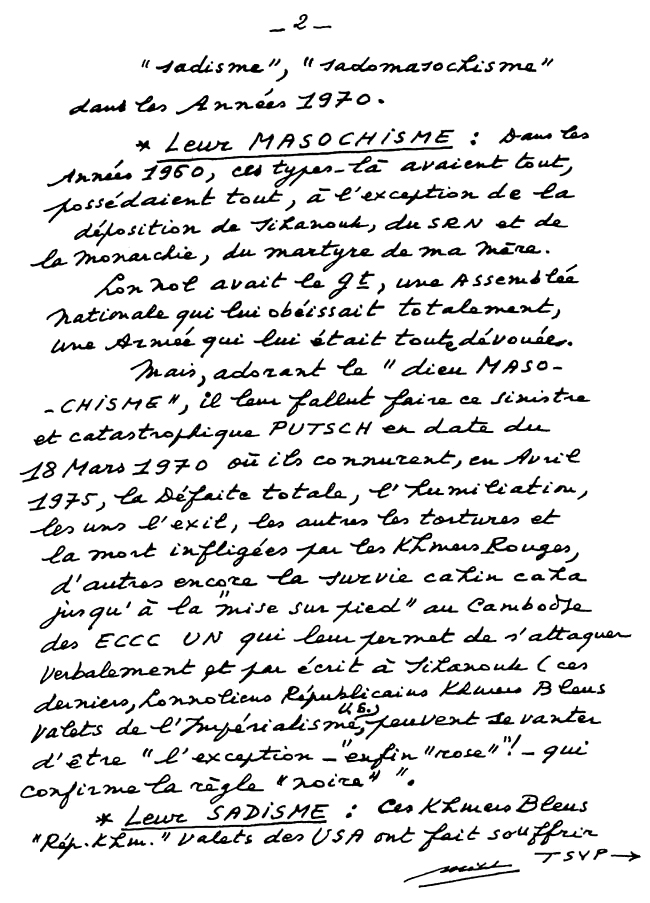 — 2 —
"sadisme", "sadomasochisme"
dans les Années 1970.
* Leur MASOCHISME : Dans les
Années 1960, ces types-là avaient tout,
possédaient tout, à l'exception de la
déposition de Sihanouk, du SRN et de
la Monarchie, du martyre de ma Mère.
Lon Nol avait le gt, une Assemblée
Nationale qui lui obéissait totalement,
une Armée qui lui était toute dévouée.
Mais, adorant le "dieu MASO-
-CHISME", il leur fallut faire ce sinistre
et catastrophique PUTSCH en date du
18 Mars 1970 où ils connurent, en Avril
1975, la Défaite totale, l'humiliation,
les uns l'exil, les autres les tortures et
la mort infligées par les Khmers Rouges,
d'autres encore la survie cahin caha
jusqu'à la "mise sur pied" au Cambodge
des ECCC UN qui leur permet de s'attaquer
verbalement et par écrit à Sihanouk (ces
derniers, Lonnoliens Républicains Khmers Bleus
valets de l'Impérialisme U.S.), peuvent se vanter
d'être "l'exception – "enfin "rose"! – qui
confirme la règle "noire" ".
* Leur SADISME : Ces Khmers Bleus
"Rép. Khm." valets des USA ont fait souffrir
TSVP →